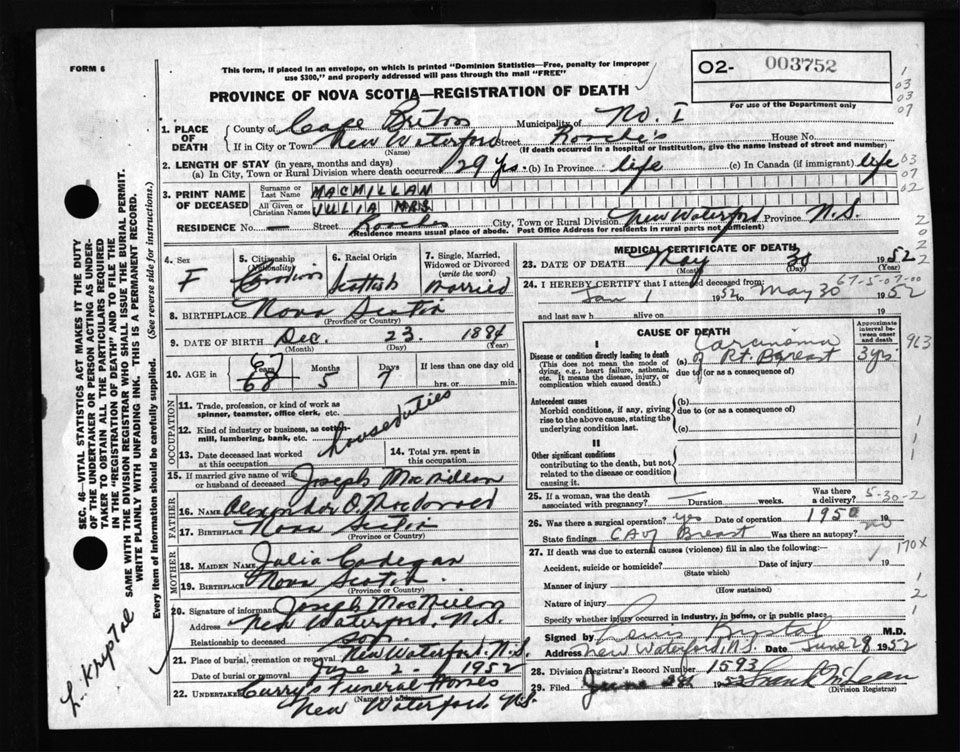 FORM 6
This form, if placed in an envelope, on which is printed "Dominion Statistics—Free, penalty for improper
use $300," and properly addressed will pass through the mail "FREE"
02- 003752
For use of the Department only
PROVINCE OF NOVA SCOTIA—REGISTRATION OF DEATH
1. PLACE OF DEATH
County of Cape Breton Municipality of No. 1
If in City or Town New Waterford Street Roache's House No.
(Name) (If death occurred in a hospital or institution, give the name instead of street and number)
2. LENGTH OF STAY (in years, months and days)
(a) In City, Town or Rural Division where death occurred 29 yrs. (b) In Province life (c) In Canada (if immigrant) life
3. PRINT NAME OF DECEASED
Surname or Last Name MACMILLAN
All Given or Christian Names JULIA MRS.
RESIDENCE No. — Street Roaches City, Town or Rural Division New Waterford Province N.S.
(Residence means usual place of abode. Post Office Address for residents in rural parts not sufficient)
4. Sex F
5. Citizenship (Nationality)
6. Racial Origin Scottish
7. Single, Married, Widowed or Divorced (write the word) Married
8. BIRTHPLACE Nova Scotia
(Province or Country)
9. DATE OF BIRTH Dec. 23 1884
(Month) (Day) (Year)
10. AGE in Years Months Days If less than one day old
67
68 5 7 hrs. or min.
OCCUPATION
11. Trade, profession or kind of work as
spinner, teamster, office clerk, etc.
12. Kind of industry or business, as cotton-
mill, lumbering, bank, etc.
house duties
13. Date deceased last worked
at this occupation
14. Total yrs. spent in
this occupation
15. If married give name of wife
or husband of deceased Joseph MacMillan
FATHER
16. Name Alexander D. MacDonald
17. Birthplace Nova Scotia
(Province or Country)
MOTHER
18. Maiden Name Julia Cadegan
19. Birthplace Nova Scotia
(Province or Country)
20. Signature of informant Joseph MacMillan
Address New Waterford, N.S.
Relationship to deceased son.
21. Place of burial, cremation or removal New Waterford. N.S.
Date of burial or removal June 2. 1952
22. Undertaker Curry's Funeral Homes
(Name and address)
New Waterford, N.S.
MEDICAL CERTIFICATE OF DEATH
23. DATE OF DEATH May 30 1952
(Month) (Day) (Year)
24. I HEREBY CERTIFY that I attended deceased from:
67-5-07-00
Jan 1 1952 to May 30 1952
and last saw h alive on 19
CAUSE OF DEATH
Approximate interval between onset and death
I
Disease or condition directly leading to death
(This does not mean the mode of
dying, e.g., heart failure, asthenia,
etc. It means the disease, injury, or
complication which caused death.)
(a) Carcinoma of Rt. Breast 3 yrs.
due to (or as a consequence of)
Antecedent causes
Morbid conditions, if any, giving
rise to the above cause, stating the
underlying condition last.
(b)
due to (or as a consequence of)
(c)
II
Other significant conditions
contributing to the death, but not
related to the disease or condition
causing it.
25. If a woman, was the death
associated with pregnancy? — Duration weeks. Was there a delivery? 5-30-2
26. Was there a surgical operation? yes Date of operation 1950 19
State findings CA of Breast Was there an autopsy? no
27. If death was due to external causes (violence) fill in also the following:
170x
Accident, suicide or homicide? Date of injury 19
(State which)
Manner of injury
(How sustained)
Nature of injury
Specify whether injury occurred in industry, in home, or in public place
Signed by Louis Kryptal M.D.
Address New Waterford, N.S. Date June 28 1952
28. Division Registrar's Record Number 1593
29. Filed June 28 1952 Frank McLean
(Division Registrar)
SEC. 46—VITAL STATISTICS ACT MAKES IT THE DUTY
OF THE UNDERTAKER OR PERSON ACTING AS UNDER-
TAKER TO OBTAIN ALL THE PARTICULARS REQUIRED
IN THE "REGISTRATION OF DEATH" AND TO FILE THE
SAME WITH THE DIVISION REGISTRAR WHO SHALL ISSUE THE BURIAL PERMIT.
WRITE PLAINLY WITH UNFADING INK. THIS IS A PERMANENT RECORD.
Every item of information should be carefully supplied. (See reverse side for instructions.)
L. Kryptal